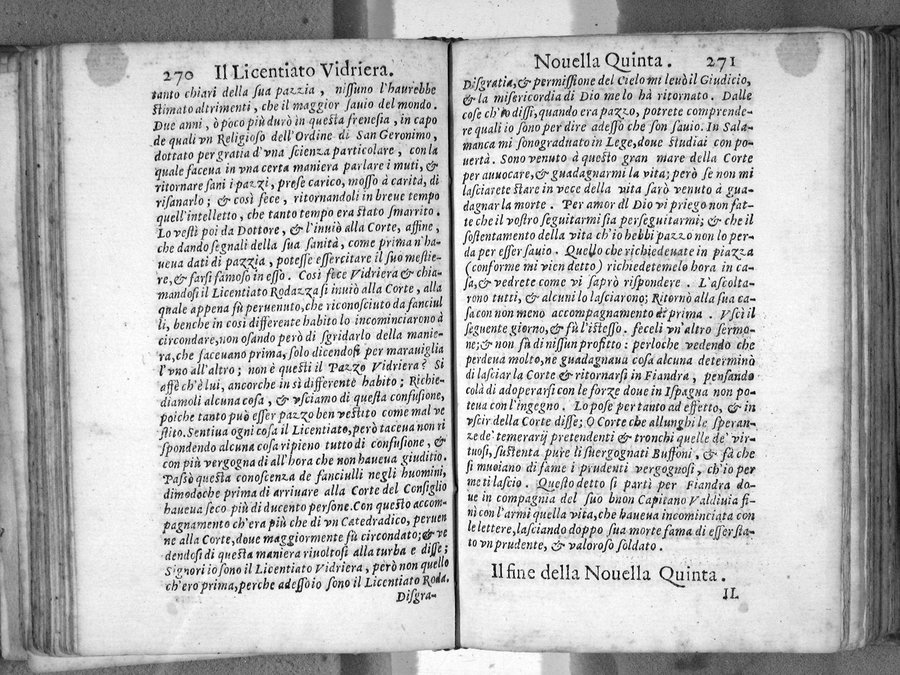 270 Il Licentiato Vidriera.
tanto chiari della sua pazzia, nissuno l'haurebbe
stimato altrimenti, che il maggior sauio del mondo.
Due anni, ò poco più durò in questa frenesia, in capo
de quali vn Religioso dell'Ordine di San Geronimo,
dottato per gratia d'vna scienza particolare, con la
quale faceua in vna certa maniera parlare i muti, &
ritornare sani i pazzi, prese carico, mosso à carità, di
risanarlo; & così fece, ritornandoli in breue tempo
quell'intelletto, che tanto tempo era stato smarrito.
Lo vestì poi da Dottore, & l'inuiò alla Corte, affine,
che dando segnali della sua sanità, come prima n'ha-
ueua dati di pazzia, potesse essercitare il suo mestie-
re, & farsi famoso in esso. Così fèce Vidriera & chia-
mandosi il Licentiato Rodazza si inuiò alla Corte, alla
quale appena fù peruenuto, che riconosciuto da fanciul
li, benche in così differente habito lo incominciarono à
circondare, non osando però di sgridarlo della manie-
ra, che faceuano prima, solo dicendosi per marauiglia
l'vno all'altro; non è questi il Pazzo Vidriera? Si
affè ch'è lui, ancorche in sì differente habito; Richie-
diamoli alcuna cosa, & vsciamo di questa confusione,
poiche tanto può esser pazzo ben vestito come mal ve
stito. Sentiua ogni cosa il Licentiato, però taceua non ri
spondendo alcuna cosa ripieno tutto di confusione, &
con più vergogna di all'hora che non haueua giuditio.
Passò questa conoscenza de fanciulli negli huomini,
dimodoche prima di arriuare alla Corte del Consiglio
haueua seco più di ducento persone. Con questo accom-
pagnamento ch'era più che di vn Catedradico, peruen
ne alla Corte, doue maggiormente fù circondato; & ve
dendosi di questa maniera riuoltosi alla turba e disse;
Signori io sono il Licentiato Vidriera, però non quello
ch'ero prima, perche adesso io sono il Licentiato Roda.
Disgra-
Nouella Quinta. 271
Disgratia, & permissione del Cielo mi leuò il Giudicio,
& la misericordia di Dio me lo hà ritornato. Dalle
cose ch'io dissi, quando era pazzo, potrete comprende-
re quali io sono per dire adesso che son sauio. In Sala-
manca mi sono graduato in Lege, doue studiai con po-
uertà. Sono venuto à questo gran mare della Corte
per auuocare, & guadagnarmi la vita; però se non mi
lasciarete stare in vece della vita sarò venuto à gua-
dagnar la morte. Per amor dI Dio vi priego non fat-
te che il vostro seguitarmi sia perseguitarmi; & che il
sostentamento della vita ch'io hebbi pazzo non lo per-
da per esser sauio. Quello che richiedeuate in piazza
(conforme mi vien detto) richiedetemelo hora in ca-
sa, & vedrete come vi saprò rispondere. L'ascolta-
rono tutti, & alcuni lo lasciarono; Ritornò alla sua ca-
sa con non meno accompagnamento di prima. Vscì il
seguente giorno, & fù l'istesso. feceli vn'altro sermo-
ne; & non fù di nissun profitto: perloche vedendo che
perdeua molto, ne guadagnaua cosa alcuna determinò
di lasciar la Corte & ritornarsi in Fiandra, pensando
colà di adoperarsi con le forze doue in Ispagna non po-
teua con l'ingegno. Lo pose per tanto ad effetto, & in
vscir della Corte disse; O Corte che allunghi le speran-
ze de' temerarij pretendenti & tronchi quelle de' vir-
tuosi, sustenta pure li suergognati Buffoni, & fà che
si muoiano di fame i prudenti vergognosi, ch'io per
me ti lascio. Questo detto si partì per Fiandra do-
ue in compagnia del suo buon Capitano Valdiuia fi-
nì con l'armi quella vita, che haueua incominciata con
le lettere, lasciando doppo sua morte fama di esser sta-
to vn prudente, & valoroso soldato.
Il fine della Nouella Quinta.
IL